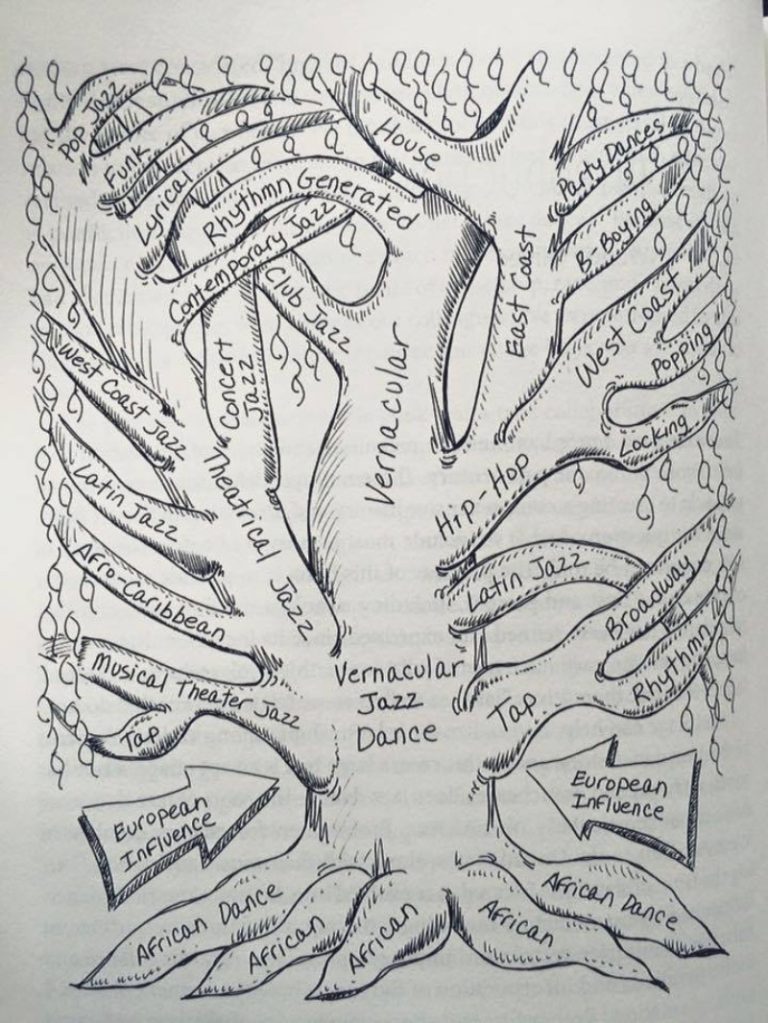 Pop Jazz
Funk
Lyrical
Rhythmn Generated
Contemporary Jazz
House
Party Dances
B. Boying
East Coast
West Coast
Popping
Locking
Club Jazz
Concert
Jazz
Vernacular
West Coast Jazz
Latin Jazz
Afro-Caribbean
Theatrical Jazz
Hip-Hop
Latin Jazz
Broadway
Rhythmn
Tap
Musical Theater Jazz
Tap
Vernacular
Jazz
Dance
European
Influence
European
Influence
African Dance
African
African
African
African Dance